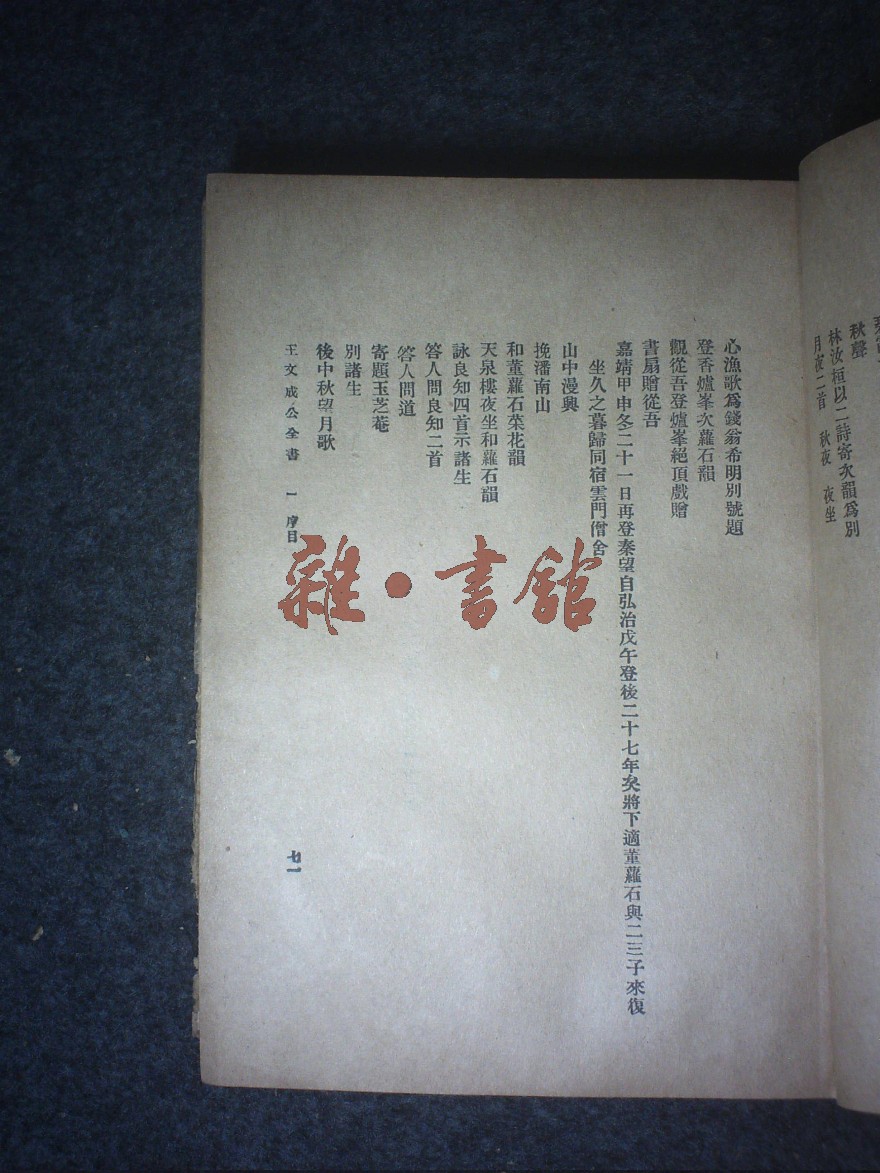 秋聲
林汝桓以二詩寄次韻爲別
月夜二首　秋夜　夜坐
心漁歌爲錢翁希明別號題
登香爐峯次蘿石韻
觀從吾登爐峯絕頂戲贈
書扇贈從吾
嘉靖甲申冬二十一日再登秦望自弘治戊午登後二十七年矣將下適董蘿石與二三子來復
坐久之暮歸同宿雲門僧舍
山中漫興
挽潘南山
和董蘿石菜花韻
天泉樓夜坐和蘿石韻
詠良知四首示諸生
答人問良知二首
答人問道
寄題玉芝菴
別諸生
後中秋望月歌
王文成公全書　一　序目
七一
雜·書館